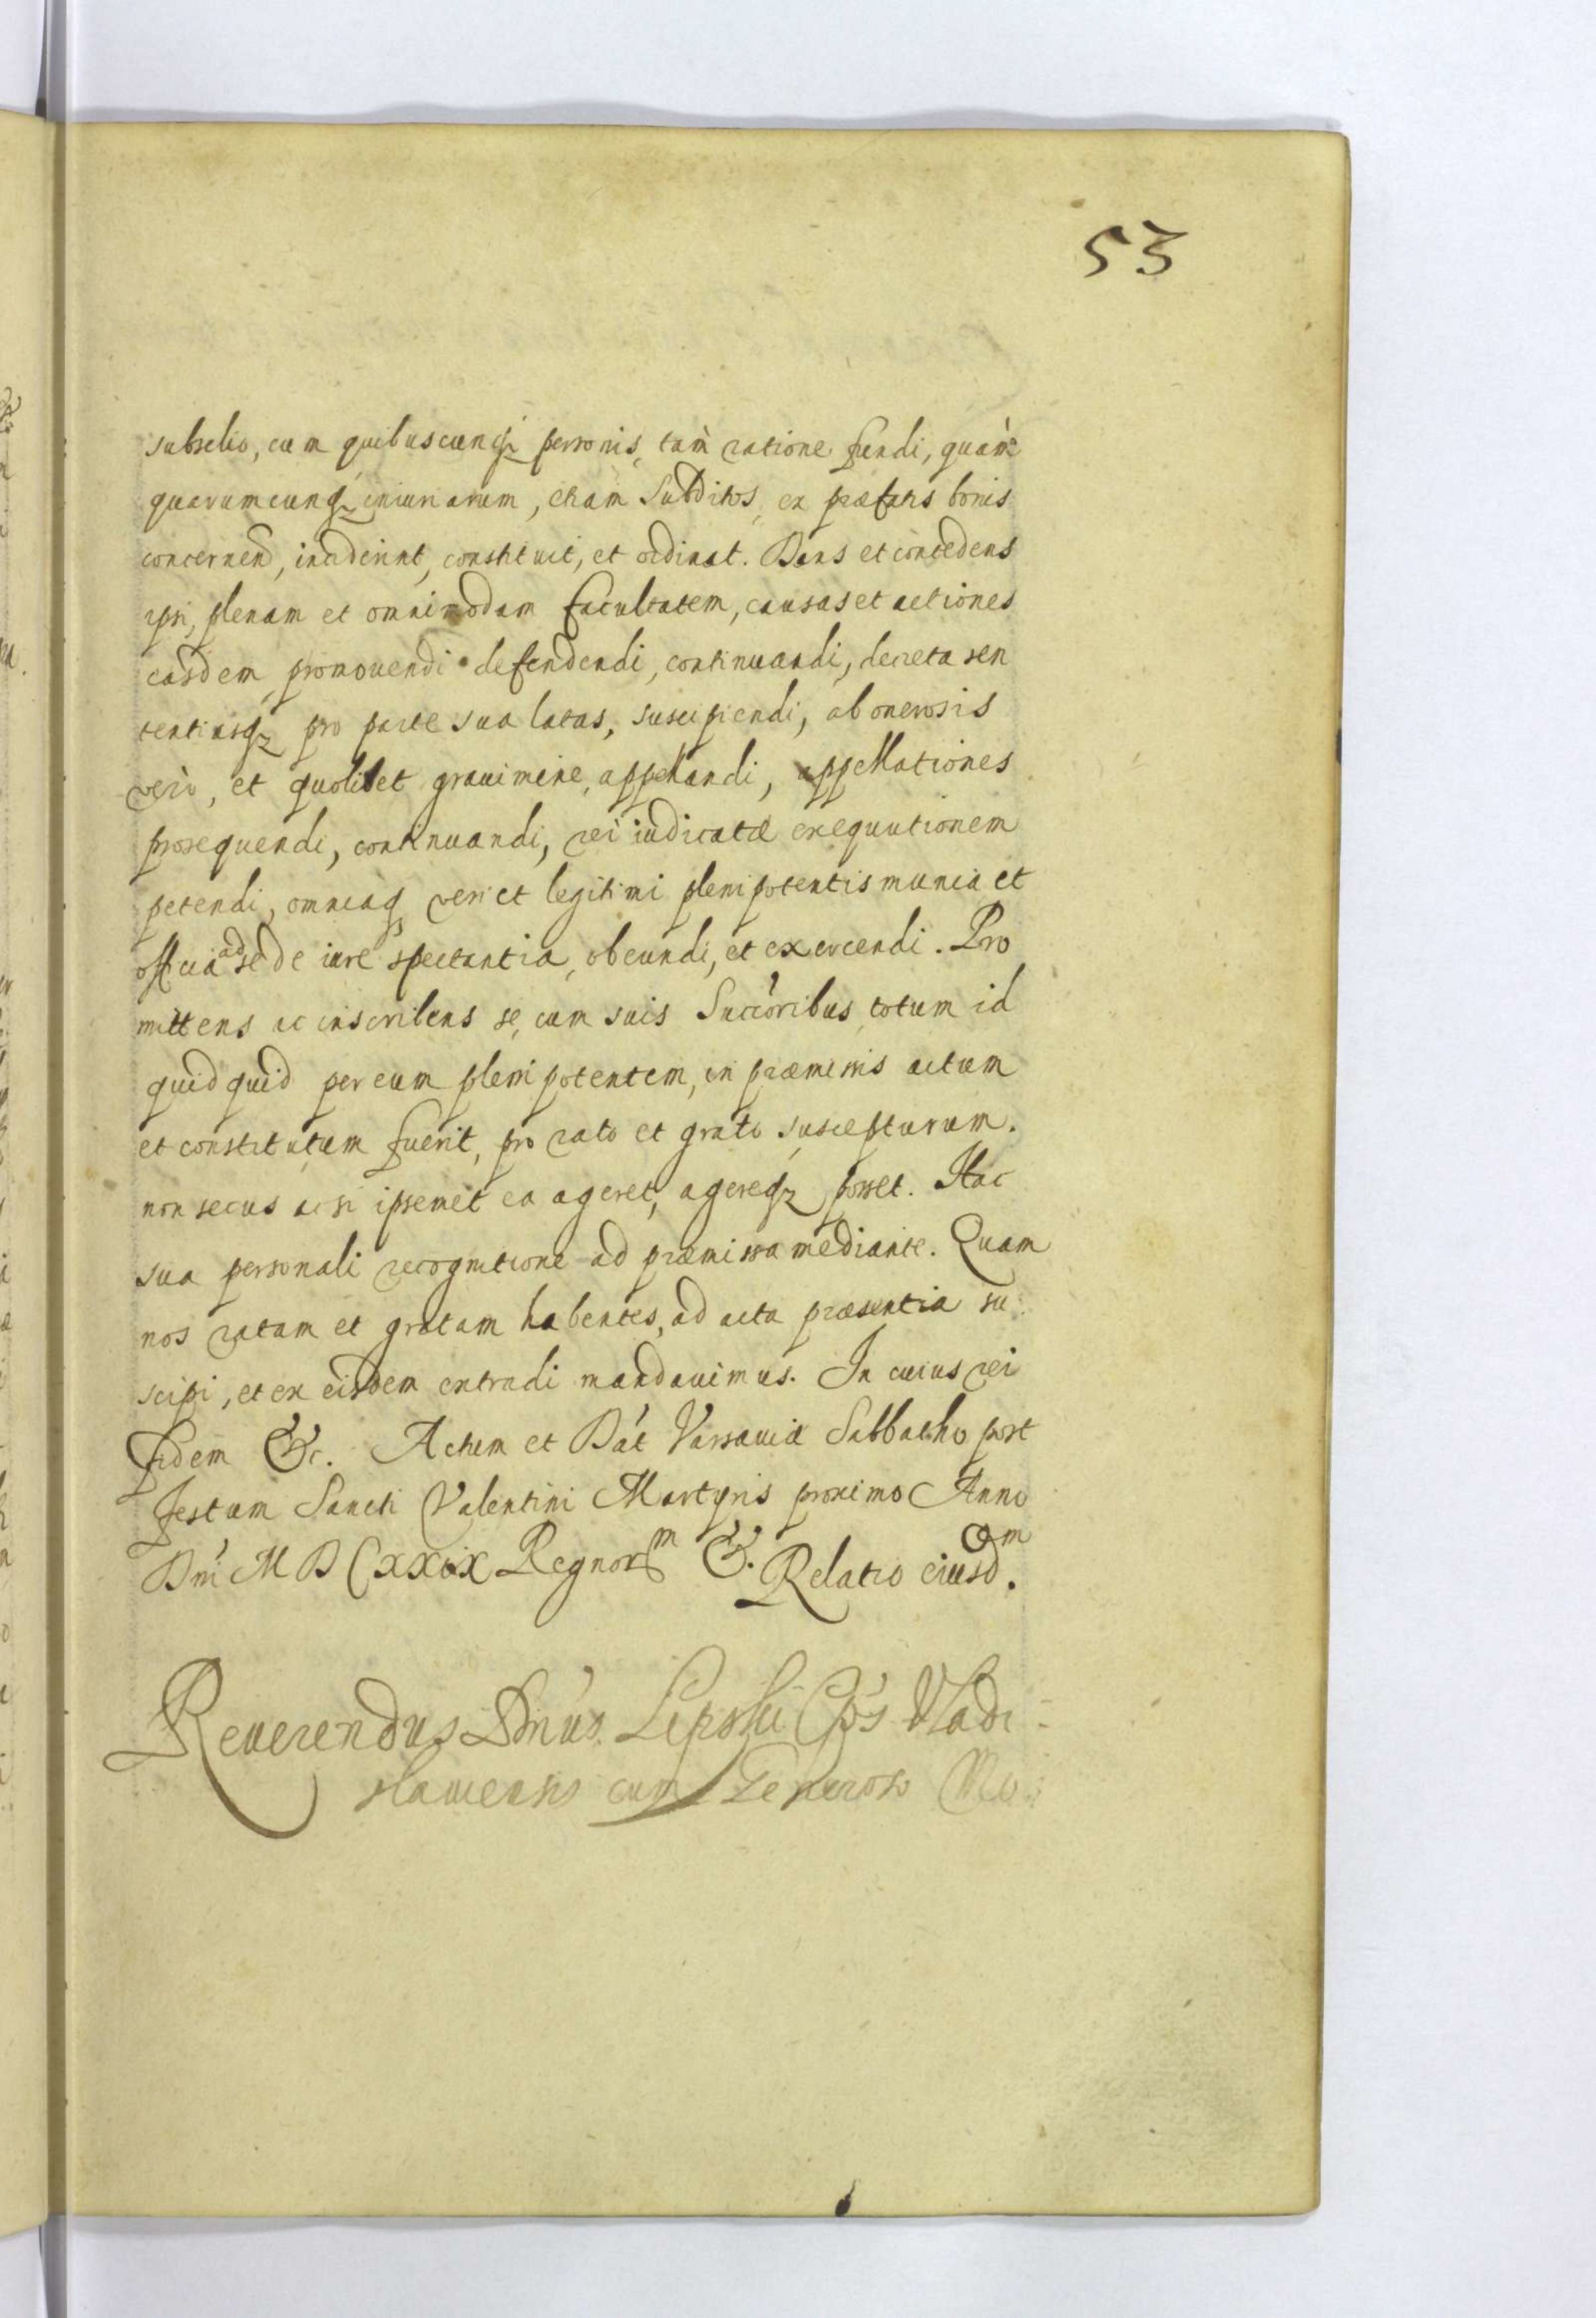 53
subselio, cum quibuscunq; personis, tam̀ ratione fundi, quam̀
quarumcunq; iniuriarum, etiam Subditos, ex præfatis bonis
concernen̄, inciderint, constituit, et ordinat. Dans et concedens
ipsi, plenam et omnimodam facultatem, causas et actiones
easdem promouendi defendendi, continuandi, decreta sen
tentiasq; pro parte sua latas, suscipiendi, ab onerosis
verò, et quolibet grauimine, appellandi, appellationes
prosequendi, continuandi, rei iudicatæ exequutionem
petendi, omniaq; veri et legitimi plenipotentis munia et
officia ad se de iure spectantia, obeundi, et exercendi. Pro
mittens ac inscribens se, cum suis Succ̃oribus, totum id
quidquid per eum plenipotentem, in præmissis actum
et constitutum fuerit, pro rato et grato suscepturum.
non secus ac si ipsemet ea ageret, agereq; posset. Hac
sua personali recognitione ad præmissa mediante. Quam
nos ratam et gratam habentes, ad acta præsentia su
scipi, et ex eisdem extradi mandauimus. In cuius rei
fidem &c. Actum et Dat́ Varsauiæ Sabbatho post
festum Sancti Valentini Martyris proximo Anno
Dni̕ MDCXXIX Regnorᵐ &. Relatio eiusd.
Reuerendus Dn̕us Lipski Ep̕s Vladi-
slauiensis cum Generoso